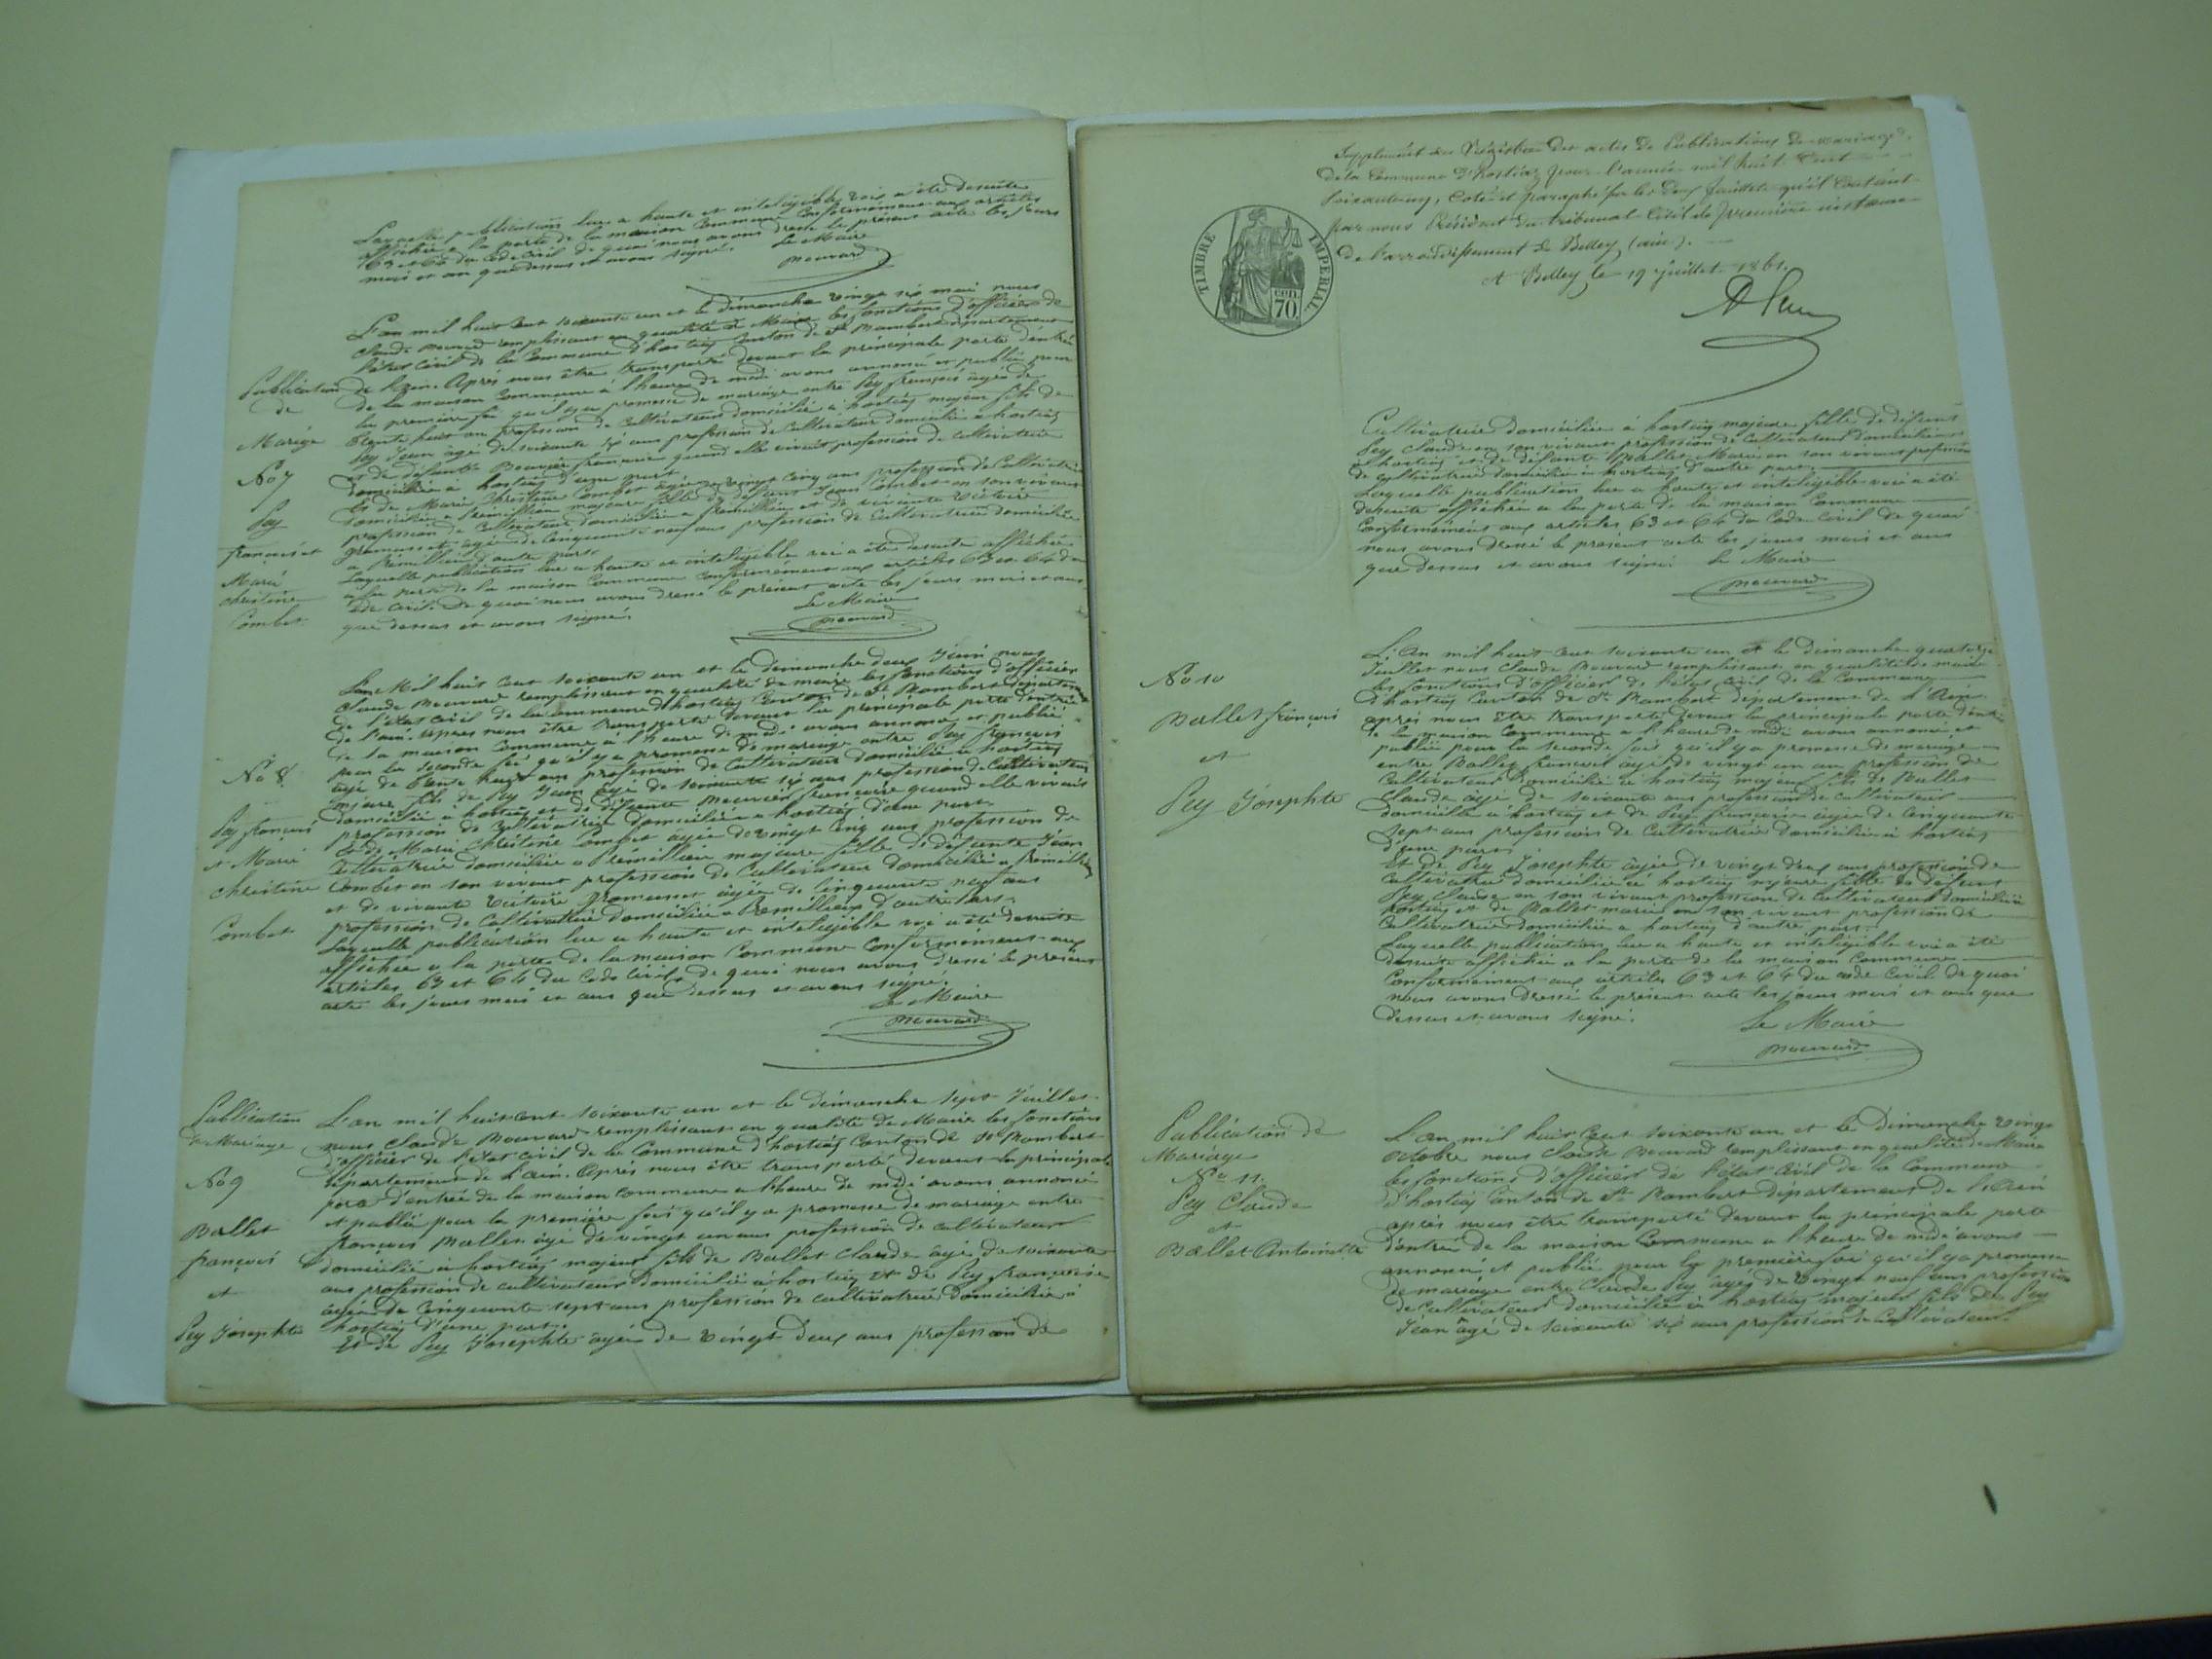 Laquelle publication lue a haute et inteligible voix a été desuite
affichée a la porte de la maison Commune Conformement aux articles
63 et 64 du Code Civil de quoi nous avons dressé le présent acte les jours
mois et an que dessus et avons signé. Le Maire
Mouvard
L'an mil huit cent soixante un et le dimanche vingt six mai nous
Claude Mouvard remplissant en qualité de Maire les fonctions d'officier de
l'état civil de la Commune d'hostiaz Canton de St Rambert département
Publication de l'ain. Après nous être transporté devant la principale porte d'entrée
de de la maison Commune à l'heure de midi avons annoncé et publié pour
la première foi qu'il y a promesse de mariage entre Pey françois âgé de
Mariage trente huit ans profession de Cultivateur domicilié à hostiaz majeur fils de
Pey Jean âgé de soixante six ans profession de Cultivateur domicilié a hostiaz
et de défunte françoise quand elle vivait profession de cultivatrice
No 7 domiciliée à hostiaz d'une part.
Et de Marie Christine Combet âgée de vingt cinq ans profession de Cultivatrice
Pey domiciliée a Prémillieu majeure fille de défunt Jean Combet en son vivant
profession de Cultivateur domicilié a Prémillieu et de vivante Victoire
françois et âgée de Cinquante neuf ans profession de Cultivatrice domiciliée
a Prémillieu d'autre part.
Marie Laquelle publication lue a haute et inteligible voi a été desuite affichée
christine a la porte de la maison Commune Conformément aux articles 63 et 64 du
Code Civil. De quoi nous avons dressé le présent acte les jours mois et ans
Combet que dessus et avons signé. Le Maire
Mouvard
L'an Mil huit cent soixante un et le dimanche deux Juin nous
Claude Mouvard remplissant en qualité de maire les fonctions d'officier
de l'état civil de la commune d'hostiaz Canton de St Rambert département
de l'ain. Après nous être transporté devant la principale porte d'entrée
de la maison Commune à l'heure de midi avons annoncé et publié
pour la seconde foi qu'il y a promesse de mariage entre Pey françois
No 8 âgé de trente huit ans profession de Cultivateur domicilié a hostiaz
majeur fils de Pey Jean âgé de soixante six ans profession de Cultivateur
domicilié à hostiaz et de défunte françoise quand elle vivait
Pey françois profession de Cultivatrice domiciliée a hostiaz d'une part.
Et de Marie Christine Combet âgée de vingt cinq ans profession de
et Marie Cultivatrice domiciliée a Prémillieu majeure fille de défunt Jean
christine Combet en son vivant profession de Cultivateur domicilié a Prémillieu
et de vivante Victoire âgée de Cinquante neuf ans
Combet profession de Cultivatrice domiciliée a Prémillieu d'autre part.
Laquelle publication lue a haute et inteligible voi a été desuite
affichée a la porte de la maison Commune Conformément aux
articles 63 et 64 du Code Civil de quoi nous avons dressé le présent
acte les jours mois et ans que dessus et avons signé.
Le Maire
Mouvard
Publication L'an mil huit cent soixante un et le dimanche sept Juillet
de Mariage nous Claude Mouvard remplissant en qualité de Maire les fonctions
d'officier de l'état civil de la Commune d'hostiaz Canton de St Rambert
No 9 département de l'ain. Après nous être transporté devant la principale
porte d'entrée de la maison commune a l'heure de midi avons annoncé
Ballet et publié pour la première foi qu'il y a promesse de mariage entre
françois françois Ballet âgé de vingt un ans profession de cultivateur
domicilié à hostiaz majeur fils de Ballet Claude âgé de soixante
et ans profession de cultivateur domicilié à hostiaz et de Pey françoise
âgée de Cinquante sept ans profession de cultivatrice domiciliée a
Pey Josephte hostiaz d'une part.
Et de Pey Josephte âgée de vingt deux ans profession de
Supplément au Régistre des actes de Publications de mariages
de la Commune d'hostiaz pour l'année mil huit cent
soixante un, coté et paraphé par les deux feuillets qu'il contient
par nous Président du tribunal Civil de première instance
de l'arrondissement de Belley (ain).
A Belley le 19 juillet 1861.
TIMBRE IMPERIAL
70
Cultivatrice domiciliée à hostiaz majeure fille de défunt
Pey Claude en son vivant profession de Cultivateur domicilié
à hostiaz et de défunte Ballet Marie en son vivant profession
de cultivatrice domiciliée à hostiaz d'autre part.
Laquelle publication lue a haute et inteligible voi a été
desuite affichée a la porte de la maison Commune
Conformément aux articles 63 et 64 du Code Civil de quoi
nous avons dressé le présent acte les jours mois et ans
que dessus et avons signé. Le Maire
Mouvard
L'An mil huit cent soixante un et le dimanche quatorze
No 10 Juillet nous Claude Mouvard remplissant en qualité de maire
les fonctions d'officier de l'état civil de la Commune
d'hostiaz Canton de St Rambert département de l'Ain
Ballet françois après nous être transporté devant la principale porte d'entrée
de la maison Commune a l'heure de midi avons annoncé et
et publié pour la seconde foi qu'il y a promesse de mariage
entre Ballet françois âgé de vingt un an profession de
Cultivateur domicilié à hostiaz majeur fils de Ballet
Pey Josephte Claude âgé de soixante ans profession de cultivateur
domicilié a hostiaz et de Pey françoise âgée de Cinquante
sept ans profession de Cultivatrice domiciliée à hostiaz
d'une part.
Et de Pey Josephte âgée de vingt deux ans profession de
Cultivatrice domiciliée a hostiaz majeure fille de défunt
Pey Claude en son vivant profession de Cultivateur domicilié
hostiaz et de Ballet marie en son vivant profession de
Cultivatrice domiciliée a hostiaz d'autre part.
Laquelle publication lue a haute et inteligible voi a été
desuite affichée a la porte de la maison Commune
Conformément aux articles 63 et 64 du code Civil de quoi
nous avons dressé le présent acte les jours mois et ans que
dessus et avons signé. Le Maire
Mouvard
Publication de L'an mil huit cent soixante un et le dimanche vingt
Mariage octobre nous Claude Mouvard remplissant en qualité de Maire
No 11. les fonctions d'officier de l'état civil de la Commune
Pey Claude d'hostiaz Canton de St Rambert département de l'Ain
et après nous être transporté devant la principale porte
Ballet Antoinette d'entrée de la maison Commune a l'heure de midi avons
annoncé et publié pour la première foi qu'il y a promesse
de mariage entre Claude Pey âgé de vingt neuf ans profession
de Cultivateur domicilié à hostiaz majeur fils de Pey
Jean âgé de soixante six ans profession de Cultivateur